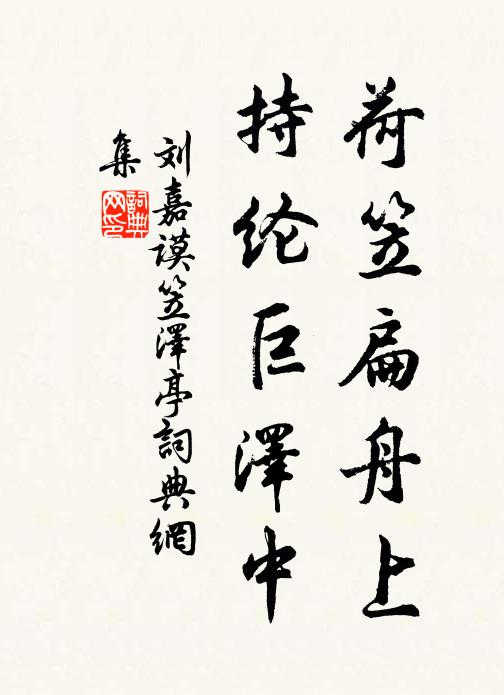 荷笠扁舟上
持纶巨澤中
刘嘉谟笠澤亭詞典網
集
詞典网印